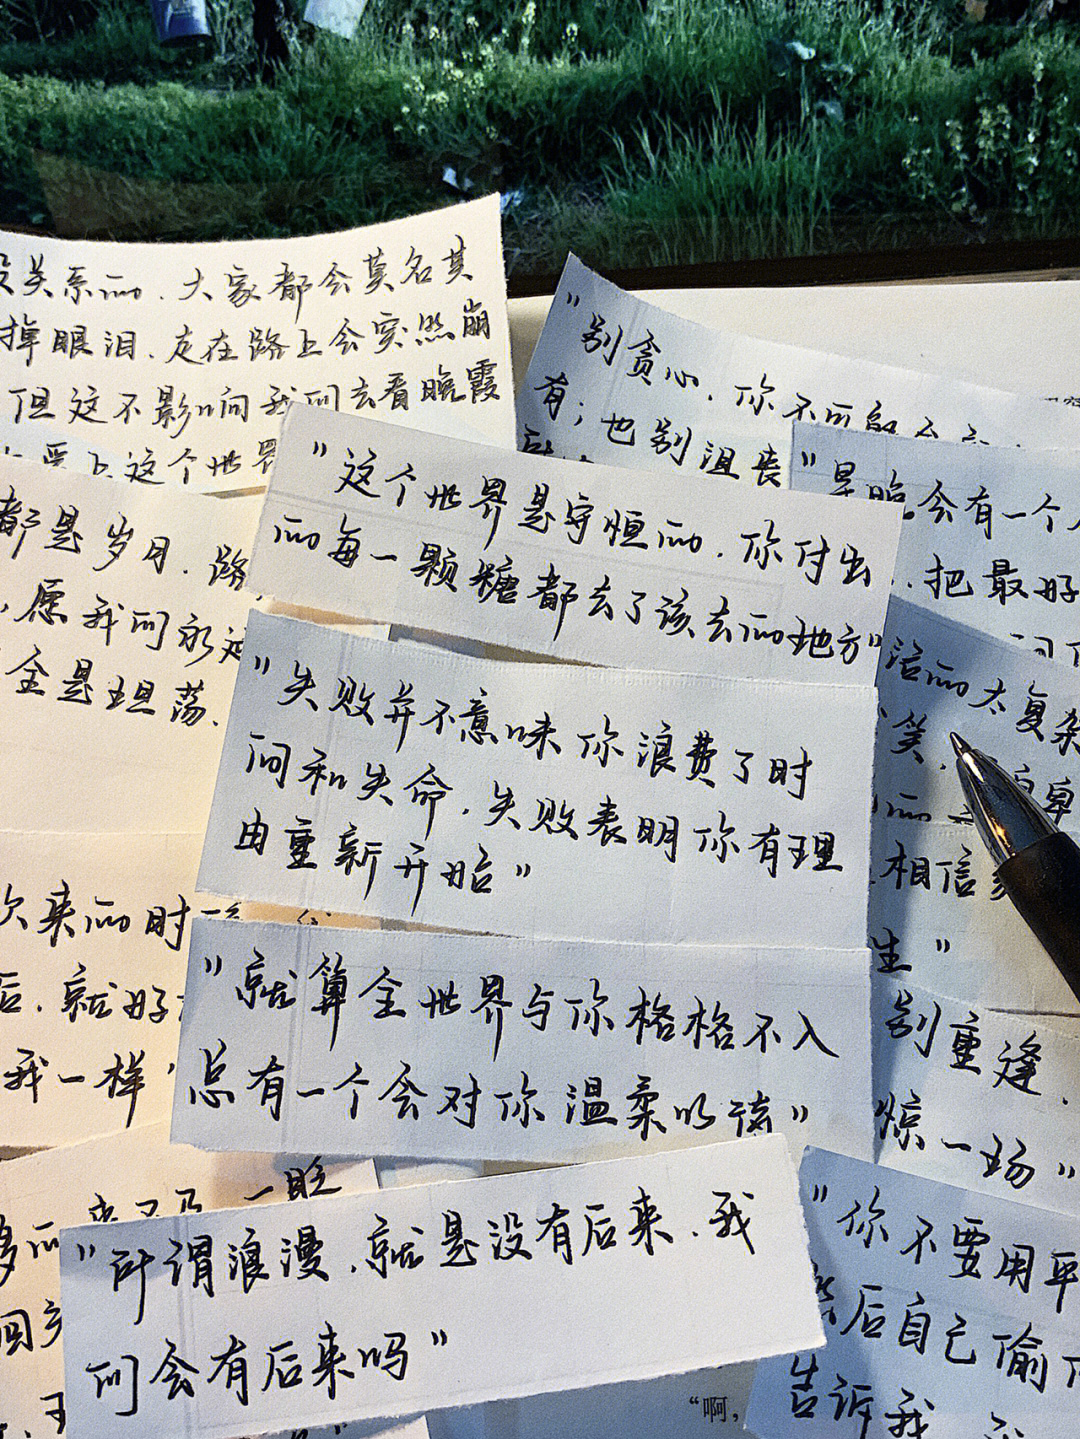 没关系的、大家都会莫名其
掉眼泪、走在路上会突然崩
但这不影响我们去看晚霞
爱上这个世界
"别贪心、你不可能
有；也别沮丧
"早晚会有一个人
把最好
"这个世界是守恒的、你付出
的每一颗糖都去了该去的地方"
都是岁月、路
愿我们永远
全是坦荡、
活的太复杂
笑、
的
相信
生"
"失败并不意味你浪费了时
间和失命、失败表明你有理
由重新开始"
次来的时
后、就好
我一样
"就算全世界与你格格不入
总有一个会对你温柔以待"
别重逢、
惊一场"
一眨
"所谓浪漫、就是没有后来、我
们会有后来吗"
"你不要用平
然后自己偷
告诉我、
"啊，